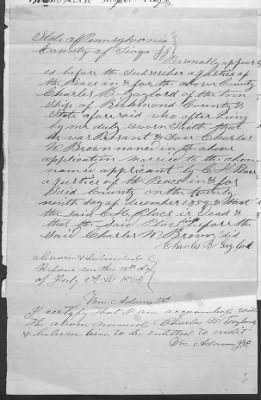 State of Pennsylvania
County of Tioga ss
Personally appear
is before the Subscriber a Justice of
the Peace in & for the above County
Charles B. Gaylord of the Town
Ship of Richmond County &
State aforesaid who after being
by me duly sworn Saith that
he was Present & Saw Charles
W Brown name in the above
application married to the above
named applicant by C. H. Place
a Justice of the Peace for
Said County on the twenty
ninth day of december 1859 & that
the said C H Place is dead &
that the Said Place died before the
Said Charles W Brown did
Charles B Gaylord
Sworn & Subscribed
Before me this day
of July AD
Wm Adams JP
I certify that I am acquainted with
the above named Charles B. Gaylord
& believe him to be entitled to credit
Wm Adams JP